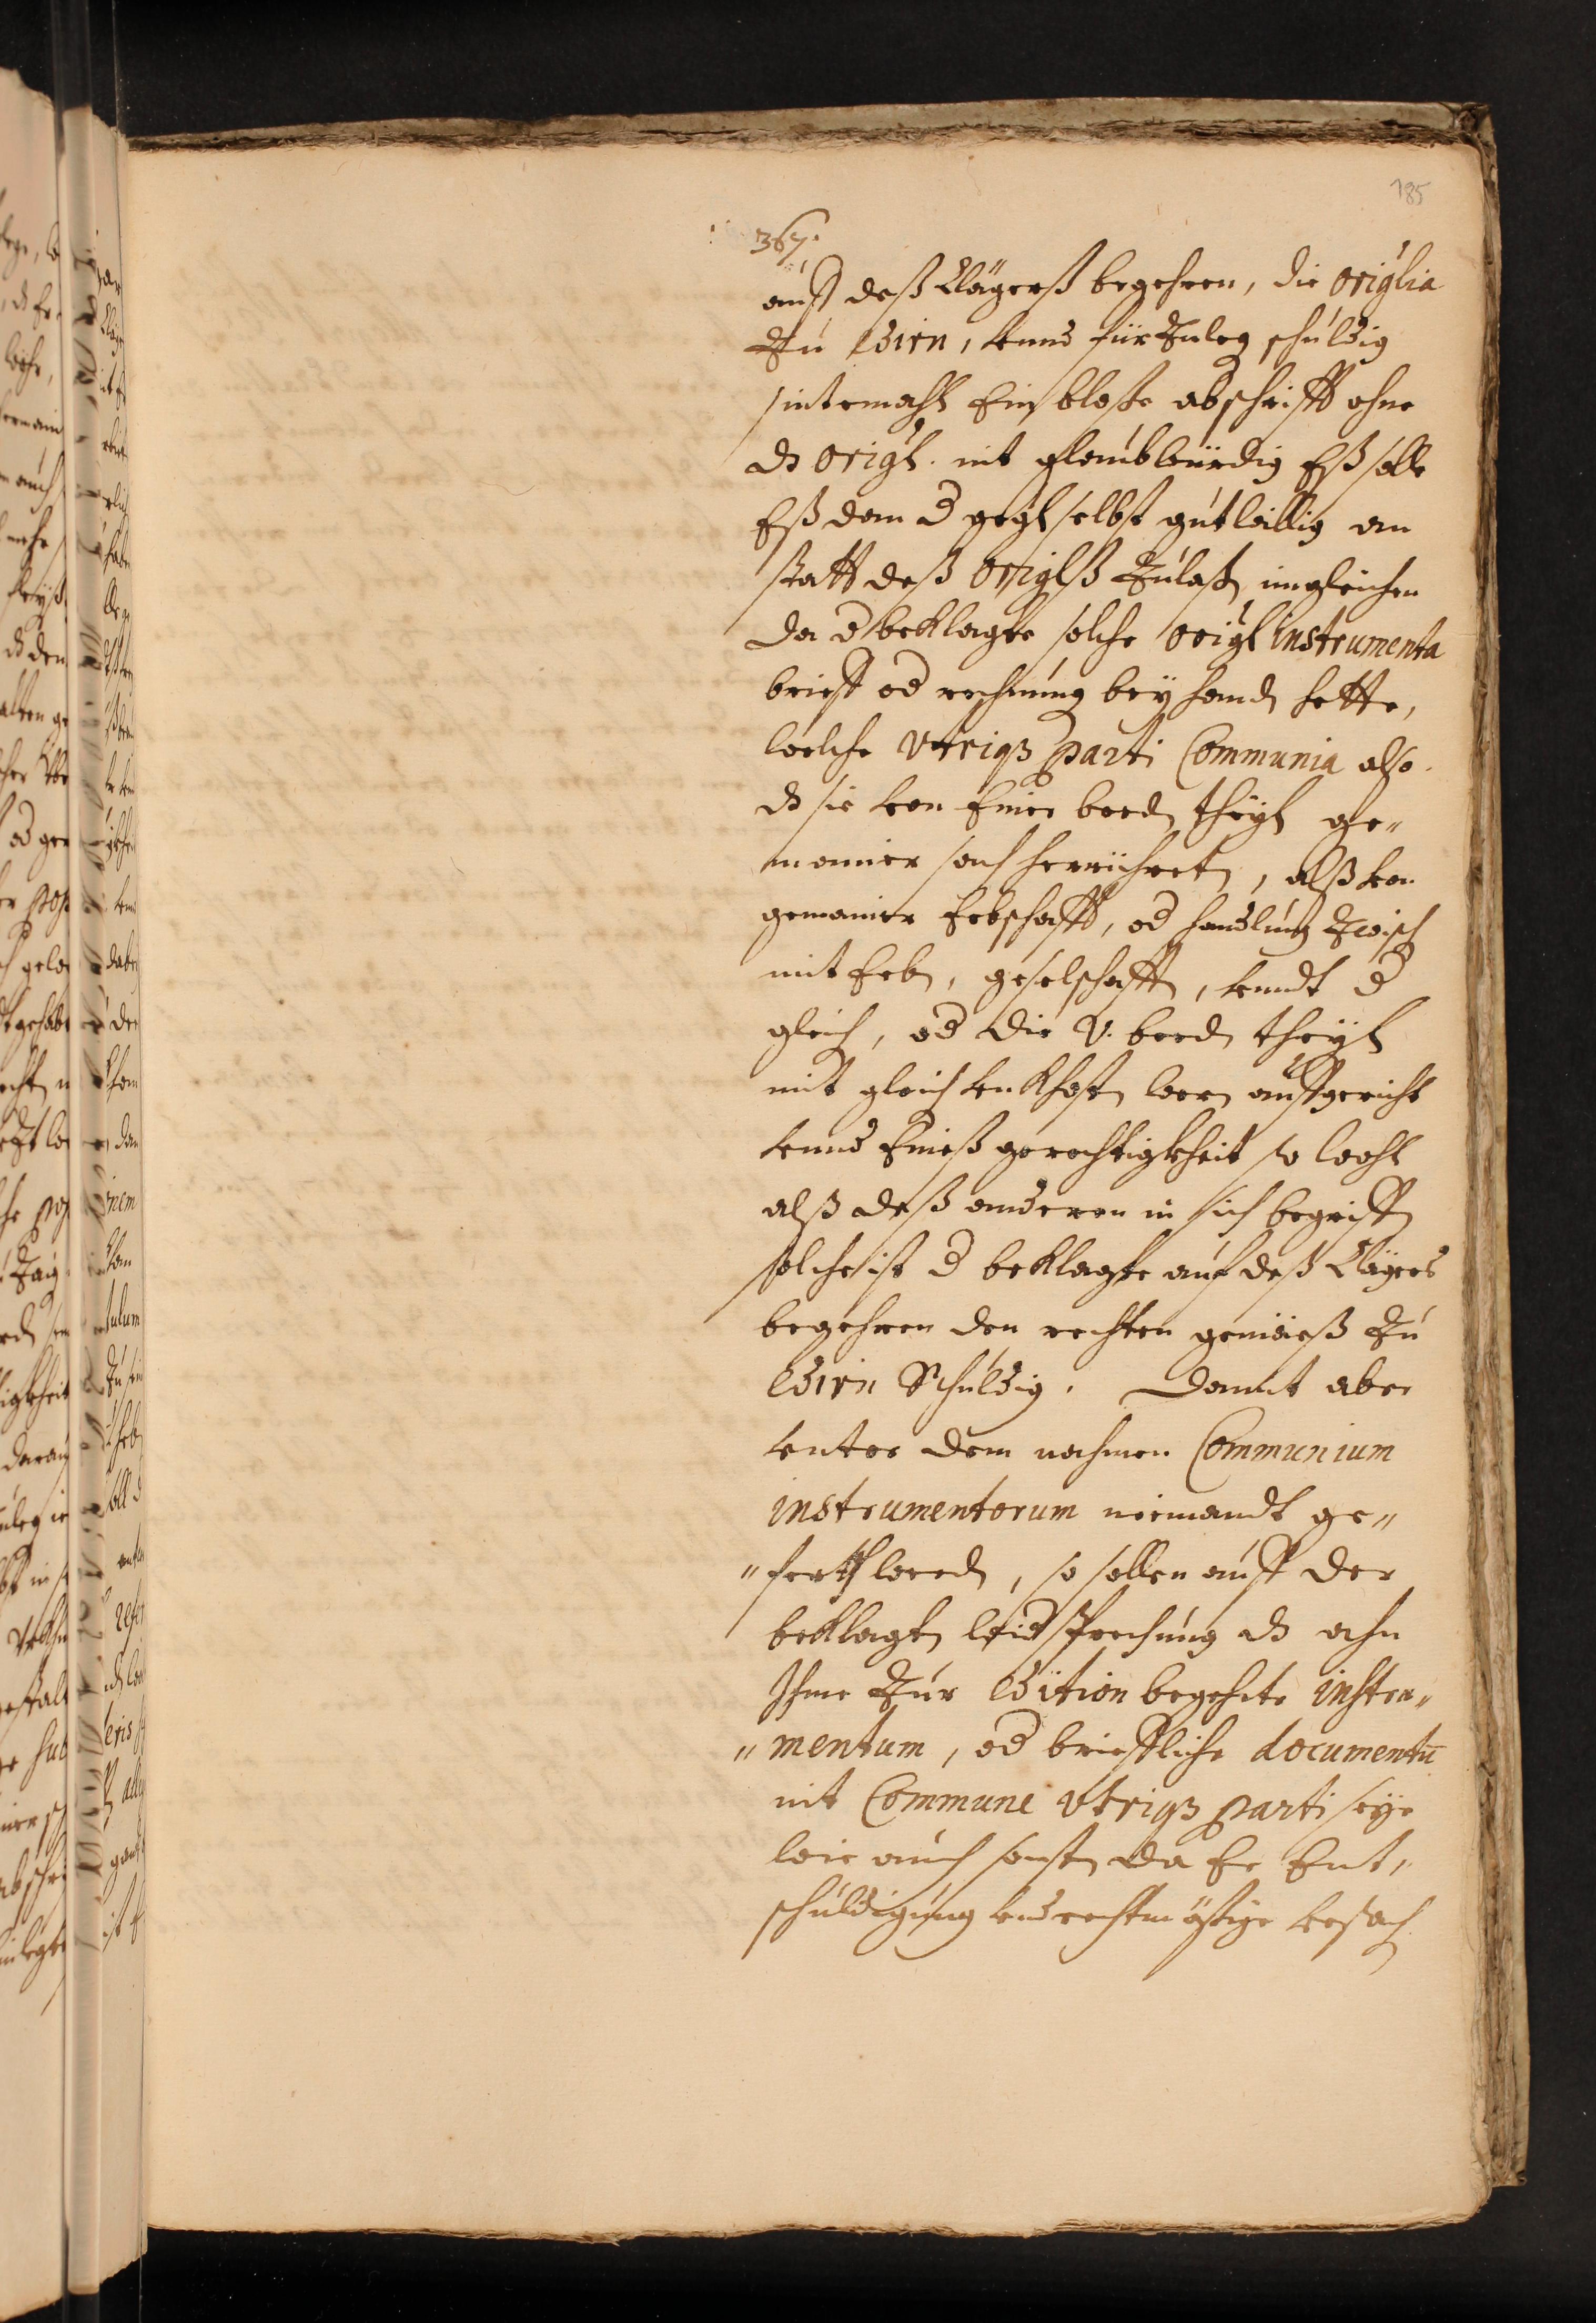 185
367.
auff deß Clägerß begehren, die origlia
zu edirn, vnnd fürzuleg schuldig
sintemahl Ein bloße abschrifft ohne
dz origl. nit glaubwürdig Eß solle
Eß dan d gegl selbst gutwillig an
statt deß origlß zulaßn imgleichen
da d beklagte solche origl instrumenta
brieff od rechnung bey handn hette,
welche vtriqz parti Communia also
dz sie von Einer beedn theyl ge„
mainer sach herrüehretn, alß von
gemainer Erbschafft, od handlung zwisch
mit Erbn, geselschafftn, vnndt d
gleich, od die v. beedn theyl
mit gleich vnkhostn wern auffgericht
vnnd Eineß gerechtigkheit so wohl
alß deß anderen in sich begriffn
solche ist d beklagte auf deß Clägers
begehren den rechten gemäeß zu
edirn Schuldig. Damit aber
vnter dem nahmen Communium
instrumentorum niemandt ge„
„ferth werdn, so sollen auff der
beklagtn widsprechung dz ahn
Ihme zur edition begehrte instru„
„mentum, od briefliche documentū
nit Commune vtriqz parti seye
wie auch sonstn da Er Ent„
schuldigung vnd rechtmäßige vrsach